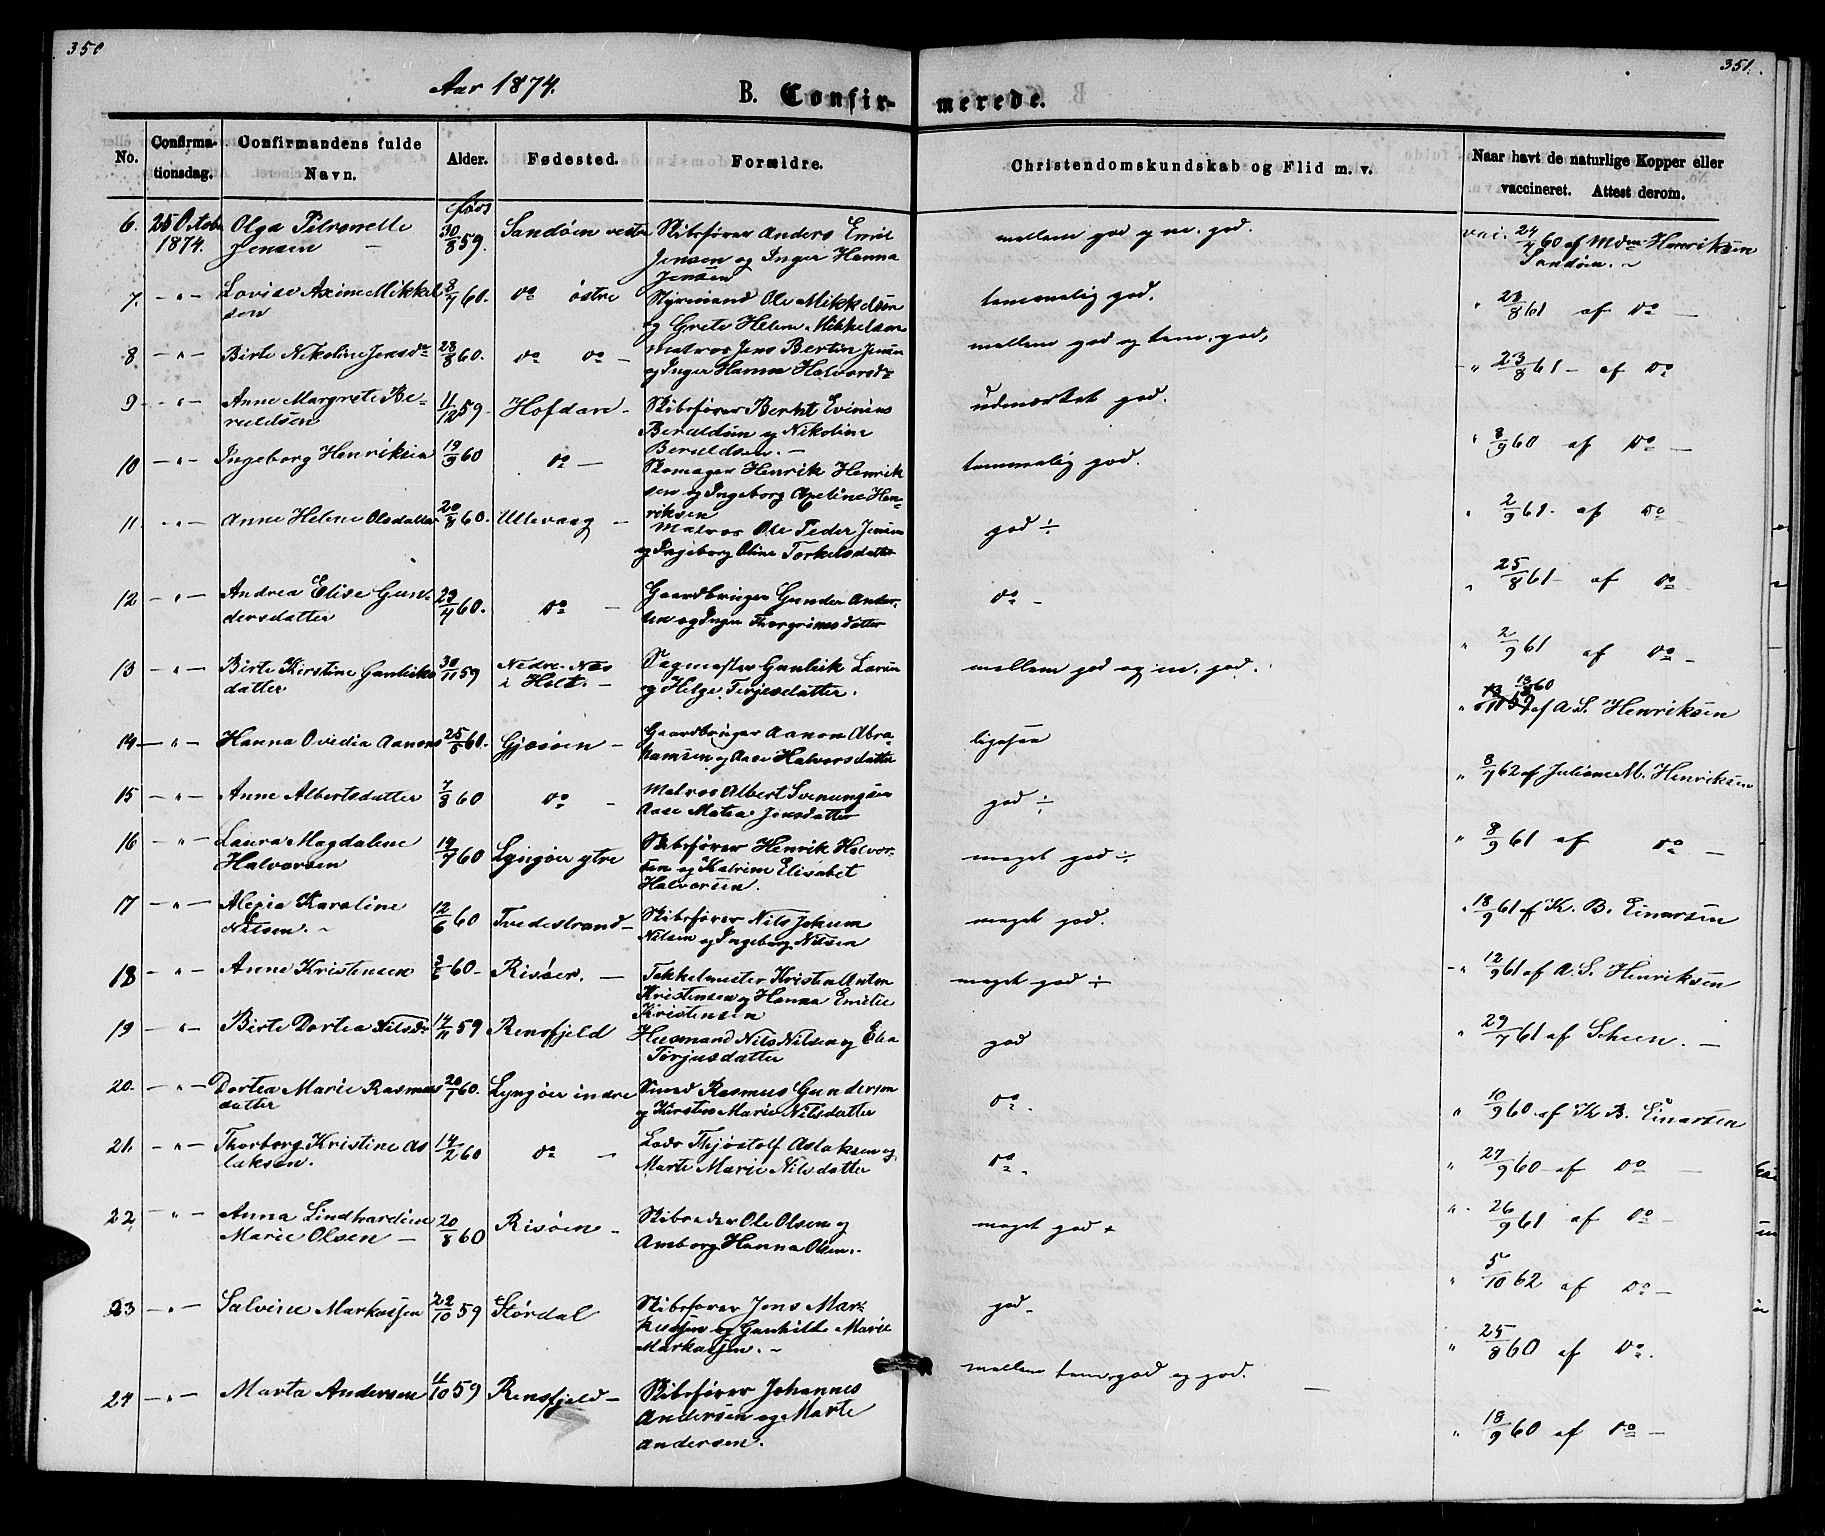 350
351.
Aar 1874.
B. Confir-
merede.
No.
Confirma-
tionsdag.
Confirmandens fulde
Navn.
Alder.
Fødested.
Forældre.
Christendomskundskab og Flid m. v.
Naar havt de naturlige Kopper eller
vaccineret. Attest derom.
født
6. 25 Octobr 1874. Olga Petronelle Jensen 30/8 59. Sandøen vestre Skibsfører Anders Emil Jensen og Inger Hanna Jensen mellem god og m. god. vac. 24/4 60 af Mdm Henriksen Sandøen.
7. - " - Lovise Axine Mikkelsen 8/7 60. do østre Styrmand Ole Mikkelsen og Grete Helene Mikkelsen temmelig god. " 23/8 61 af do -
8 - " - Birte Nikoline Jensdr 28/8 60. do do - Matros Jens Bertin Jensen og Inger Hanna Halvorsdr mellem god og tem. god. - " 23/8 61 - af do
9 - " - Anne Margrete Beruldsen 11/12 59 - Hofdan - Skibsfører Bernt Evinius Beruldsen og Nikoline Beruldsen. - udmærket god. " 8/9 60 af do -
10 - " - Ingeborg Henriksen 19/9 60 do - Skomager Henrik Henriksen og Ingeborg Axeline Henriksen temmelig god. " 2/9 61 - af do -
11. - " - Anne Helene Olsdatter 20/8 60. Ullevaag - Matros Ole Peder Jensen og Ingeborg Oline Torkelsdatter god ÷ " 25/8 61 - af do
12 - " - Andrea Elise Gundersdatter 29/4 60. do - Gaardbruger Gunder Andersen og Inger Thorgrimsdatter do - " 2/9 61 af do -
13 - " - Birte Kirstine Gunleiksdatter 30/11 59 Nedre Næs i Holt. - Sagmester Gunleik Larsen og Helge Terjesdatter. mellem god og m. god. " 13/8 60 af A. S. Henriksen
14 - " - Hanna Ovedia Aanons 25/5 60. Gjesøen - Gaardbruger Aanon Abrahamsen og Aase Halvorsdatter ligesaa " 8/7 62 af Juliane M. Henriksen
15 - " - Anne Albertsdatter 7/8 60 do - Matros Albert Svenungsen Aase Matea Jensdatter god ÷ " 8/9 61 af do -
16 - " - Laura Magdalene Halvorsen 14/7 60 Lyngøer ytre Skibsfører Henrik Halvorsen og Katrine Elisabet Halvorsen. meget god ÷ " 18/9 61 af K. B. Einarsen
17 - " - Alexia Karoline Nilsen. - 12/6 60 Tvedestrand - Skibsfører Nils Jokum Nilsen og Ingeborg Nilsen meget god. - " 12/9 61 af A. S. Henriksen
18 - " - Anne Kristensen 3/6 60 - Risøer. - Takkelmester Kristen Anton Kristensen og Hanna Emilie Kristensen meget god ÷ " 29/7 61 af Scheen. -
19 - " - Birte Dortea Nilsdr 14/11 59 Rensfjeld Husmand Nils Nilsen og Elea Torjusdatter god " 10/9 60 af K. B. Einarsen
20. - " - Dortea Marie Rasmusdatter 20/7 60. Lyngøer indre Smed Rasmus Gundersen og Kirsten Marie Nilsdatter do. " 27/9 60 - af do -
21. - " - Thorborg Kristine Aslaksen. 14/2 60 do - Lods Thjøstolf Aslaksen og Marte Marie Nilsdatter do. " 26/9 61 af do -
22 - " - Anna Lindhardine Marie Olsen - 20/8 60 Risøen - Skibsreder Ole Olsen og Amborg Hanna Olsen. meget god + " 5/10 62 af do -
23 - " - Salvine Markussen 22/10 59 Størdal Skibsfører Jens Markussen og Gunhilde Marie Markussen. - god. " 25/8 60 af do.
24 - " - Marta Andersen 4/10 59 Rensfjeld - Skibsfører Johannes Andersen og Marte Andersen. mellem tem. god og god. - " 18/9 60 af do -